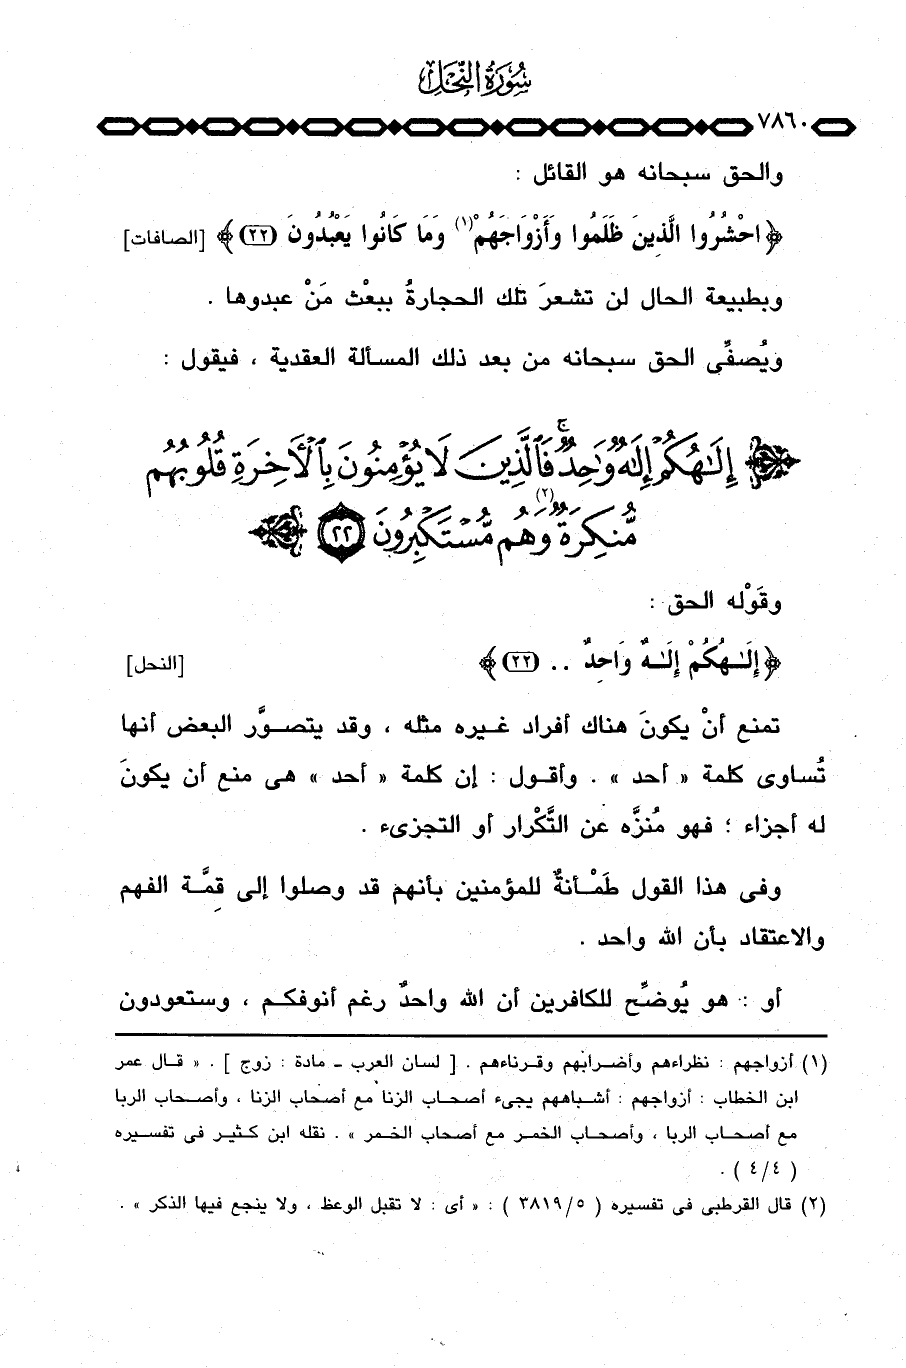 سُورَةُ النَّحْل
٧٨٦٠
والحق سبحانه هو القائل :
﴿ احْشُرُوا الَّذِينَ ظَلَمُوا وَأَزْوَاجَهُمْ (١) وَمَا كَانُوا يَعْبُدُونَ (٢٢) ﴾ [الصافات]
وبطبيعة الحال لن تشعرَ تلك الحجارةُ ببعْث مَنْ عبدوها .
ويُصفِّى الحق سبحانه من بعد ذلك المسألة العقدية ، فيقول :
﴿ إِلَٰهُكُمْ إِلَٰهٌ وَٰحِدٌ ۚ فَٱلَّذِينَ لَا يُؤْمِنُونَ بِٱلْأَخِرَةِ قُلُوبُهُم
مُّنكِرَةٌ (٢) وَهُم مُّسْتَكْبِرُونَ ٢٢ ﴾
وقَوْله الحق :
﴿ إِلَـٰهُكُمْ إِلَـٰهٌ وَاحِدٌ .. (٢٢) ﴾ [النحل]
تمنع أنْ يكونَ هناك أفراد غيره مثله ، وقد يتصوَّر البعض أنها
تُساوى كلمة « أحد » . وأقول : إن كلمة « أحد » هى منع أن يكونَ
له أجزاء ؛ فهو مُنزَّه عن التَّكْرار أو التجزىء .
وفى هذا القول طَمْأنةٌ للمؤمنين بأنهم قد وصلوا إلى قِمَّة الفهم
والاعتقاد بأن الله واحد .
أو : هو يُوضِّح للكافرين أن الله واحدٌ رغم أنوفكم ، وستعودون
(١) أزواجهم : نظراءهم وأضرابهم وقرناءهم . [ لسان العرب - مادة : زوج ] . « قال عمر
ابن الخطاب : أزواجهم : أشباههم يجىء أصحاب الزنا مع أصحاب الزنا ، وأصحاب الربا
مع أصحاب الربا ، وأصحاب الخمر مع أصحاب الخمر » . نقله ابن كثير فى تفسيره
( ٤/٤ ) .
(٢) قال القرطبى فى تفسيره ( ٣٨١٩/٥ ) : « أى : لا تقبل الوعظ ، ولا ينجع فيها الذكر » .